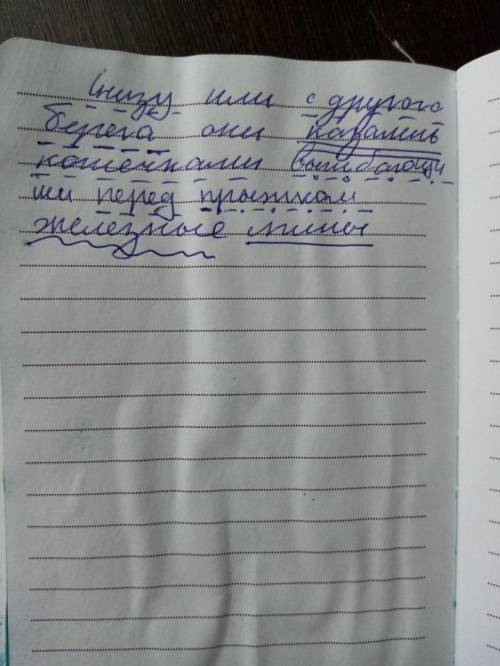 Снизу или с другого
берега они казались
кошечками выгибающи
ми перед прыжком
железные спины